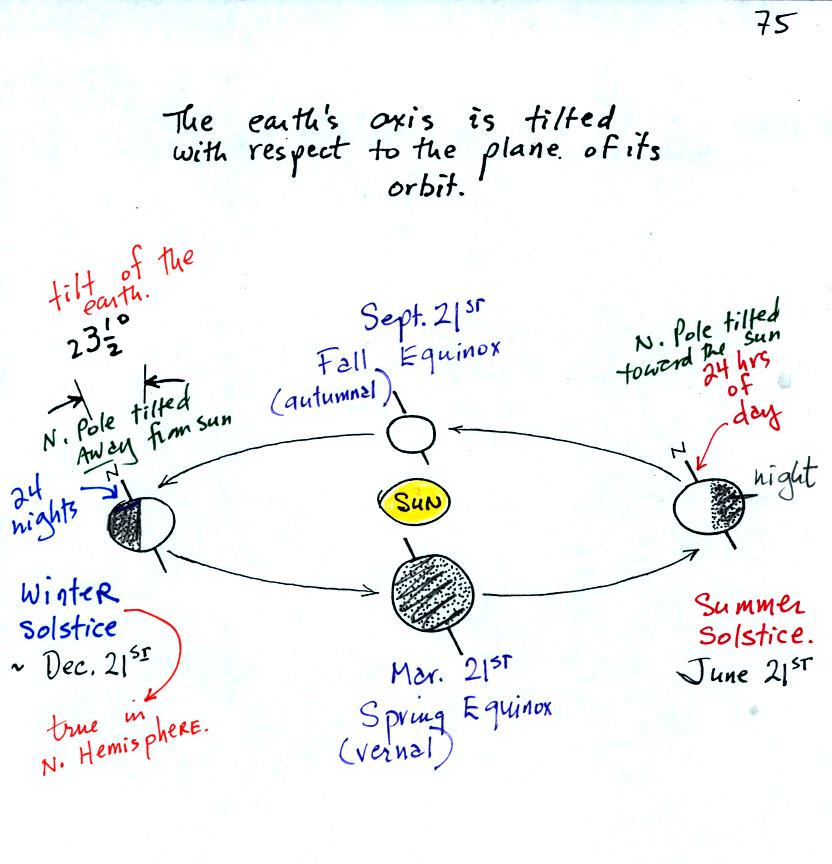 75
The earth's axis is tilted
with respect to the plane of its
orbit.
tilt of the
earth.
23 1/2°
N. Pole tilted
Away from sun
N
24
nights
Winter
Solstice
~ Dec. 21ST
true in
N. Hemisphere.
Sept. 21ST
Fall Equinox
(autumnal)
SUN
Mar. 21ST
Spring Equinox
(vernal)
N. Pole tilted
toward the sun
24 hrs
of
day
N
night
Summer
Solstice.
June 21ST